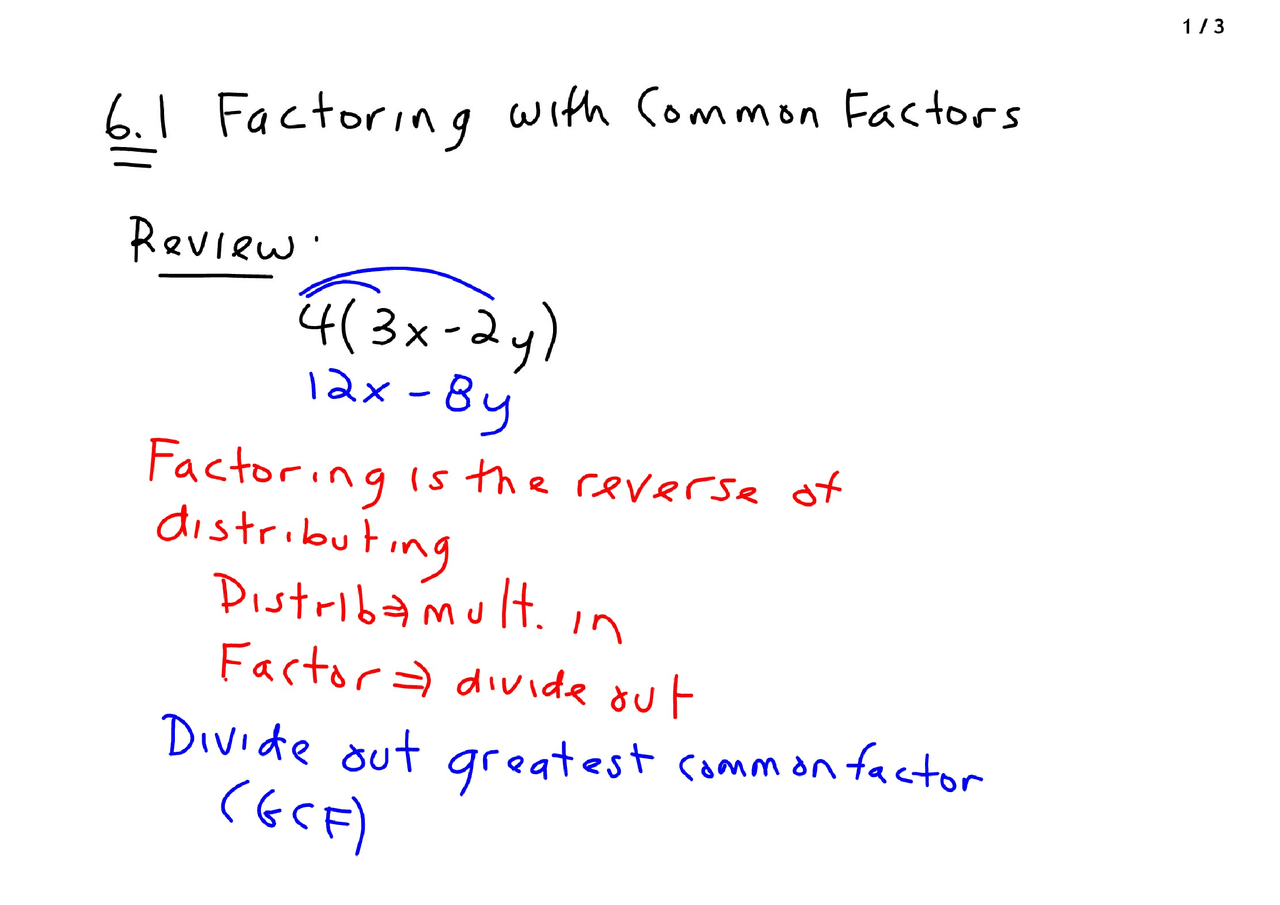 1 / 3
6.1 Factoring with Common Factors
Review.
4(3x-2y)
12x - 8y
Factoring is the reverse of
distributing
Distrib⇒mult. in
Factor⇒ divide out
Divide out greatest common factor
(GCF)